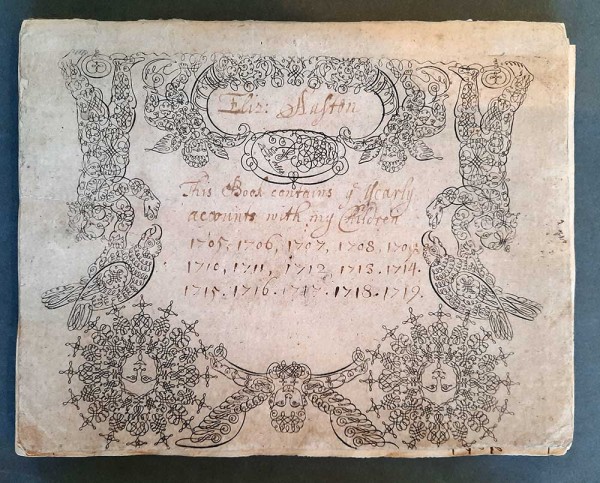 Eliz:
This Book contains ye Yearly
accounts with my Children
1705, 1706, 1707, 1708, 1709,
1710, 1711, 1712, 1713. 1714.
1715. 1716. 1717. 1718. 1719.